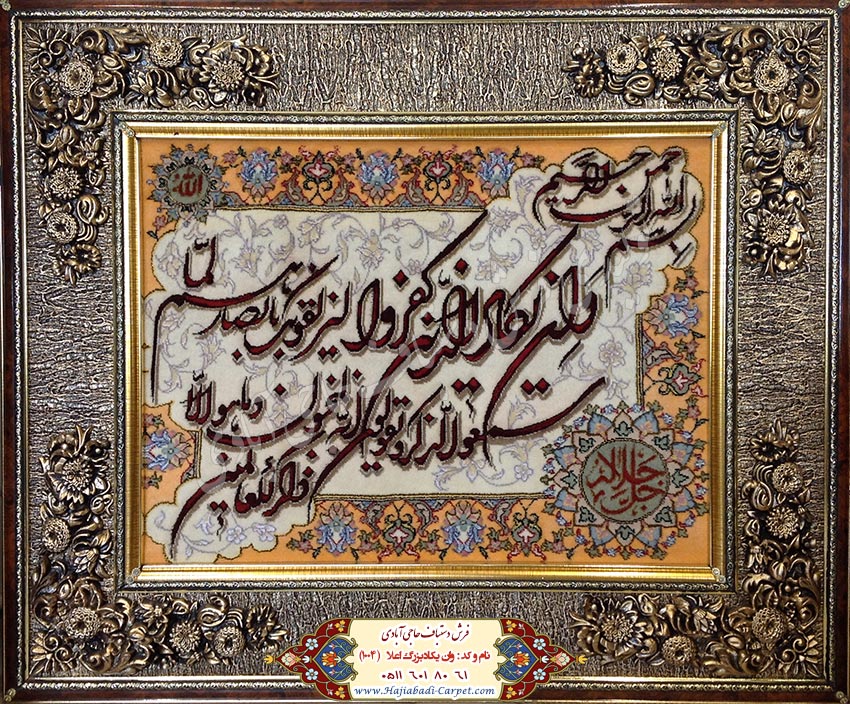 بسم الله الرحمن الرحیم
الله
وان یکاد الذین کفروا لیزلقونک بابصارهم لما
سمعوا الذکر و یقولون انه لمجنون وما هو الا
ذکر للعالمین
جل جلاله
فرش دستباف حاجی آبادی
نام و کد: وان یکاد بزرگ اعلا (۱۰۰۴)
۰۵۱۱ ۶۰۱ ۸۰ ۶۱
www.Hajiabadi-Carpet.com